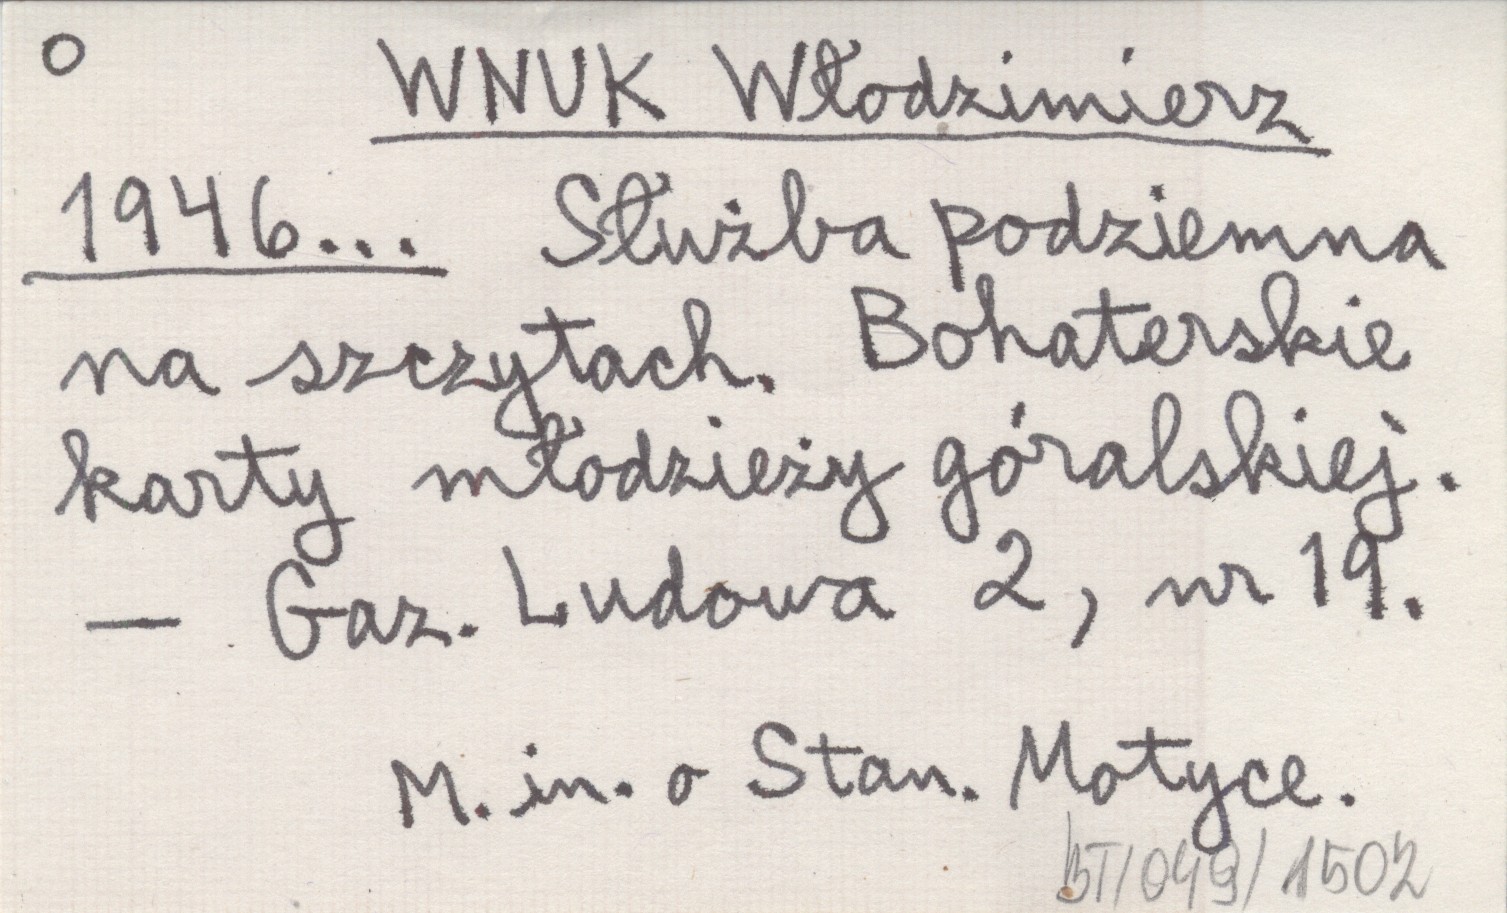 O WNUK Włodzimierz
1946... Służba podziemna
na szczytach. Bohaterskie
karty młodzieży góralskiej.
— Gaz. Ludowa 2, nr 19.
M. in. o Stan. Motyce.
BT/049/1502